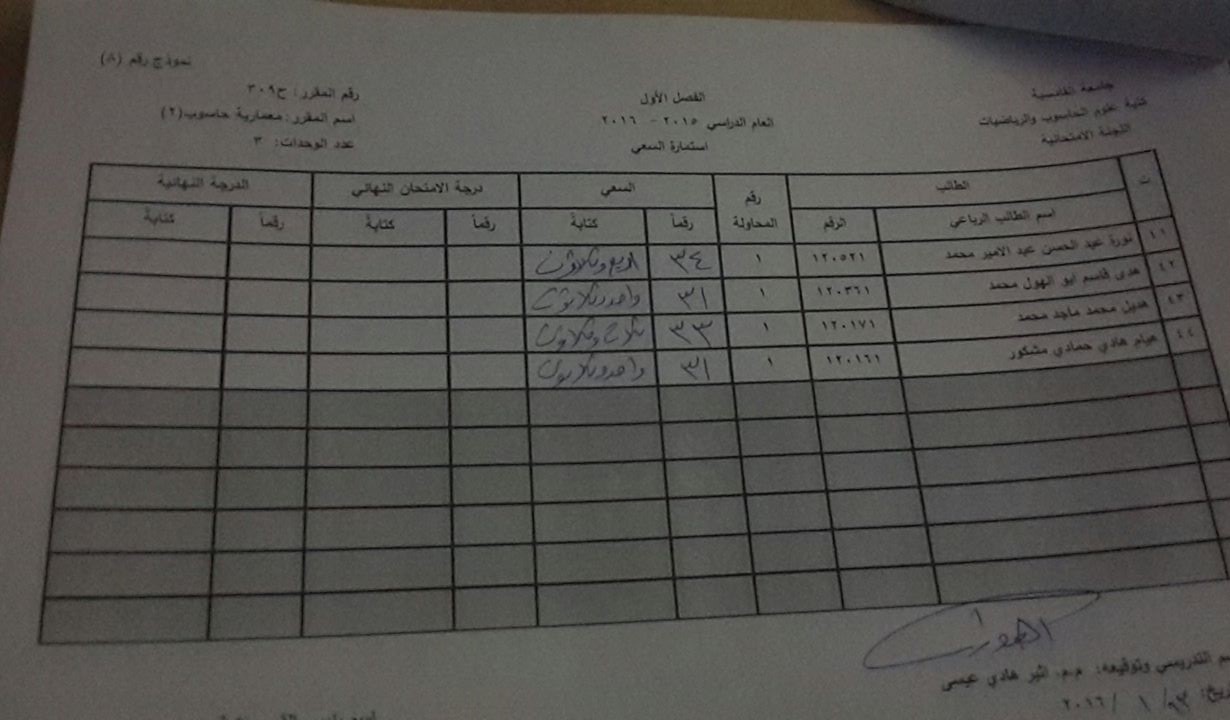 نموذج رقم (٨)
جامعة القادسية
كلية علوم الحاسوب والرياضيات
اللجنة الامتحانية
الفصل الأول
العام الدراسي ٢٠١٥ - ٢٠١٦
استمارة السعي
رقم المقرر: ح٣٠٩
اسم المقرر: معمارية حاسوب(٢)
عدد الوحدات: ٣
ت الطالب رقم المحاولة السعي درجة الامتحان النهائي الدرجة النهائية
اسم الطالب الرباعي الرقم رقماً كتابةً رقماً كتابةً رقماً كتابةً
٤١ نورة عبد الحسن عبد الامير محمد ١٢٠٥٢١ ١ ٣٤ اربع وثلاثون
٤٢ هدى قاسم ابو الهول محمد ١٢٠٣٦١ ١ ٣١ واحد وثلاثون
٤٣ هديل محمد ماجد محمد ١٢٠١٧١ ١ ٣٣ ثلاث وثلاثون
٤٤ هيام هادي حمادي مشكور ١٢٠١٦١ ١ ٣١ واحد وثلاثون
التدريسي وتوقيعه: م.م. اثير هادي عيسى
/ ١ / ٢٠١٦